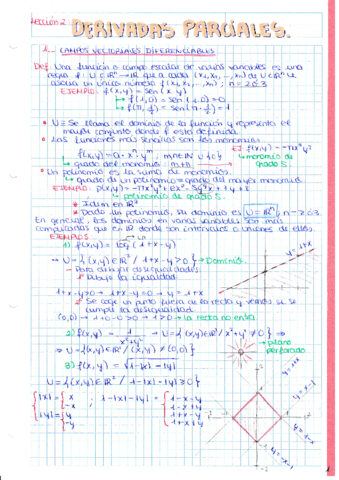 Lección 2
DERIVADAS PARCIALES.
1.- CAMPOS VECTORIALES DIFERENCIABLES
Def: Una función o campo escalar de varias variables es una
regla f: U⊂ℝⁿ→ℝ que a cada (x₁, x₂, ..., xₙ) de U⊂ℝⁿ le
asocia un único número f(x₁, x₂, ..., xₙ); n = 2 ó 3
EJEMPLO: f(x,y) = sen(x·y)
↳ f(1,0) = sen(1·0) = 0
• U ≡ Se llama el dominio de la función y representa el
mayor conjunto donde f está definida.
• Las funciones más sencillas son los monomios
f(x,y) = a·xᵐ·yⁿ; m,n∈ℕ∪{0}
↳ grado del monomio: m+n
↳ monomio de
grado 5
• Un polinomio es la suma de monomios.
↳ grado de un polinomio = grado del mayor monomio.
↳ polinomio de grado 5.
* Dado un polinomio, su dominio es U = ℝⁿ, n = 2 ó 3.
En general, los dominios en varias variables son más
complicados que en ℝ donde son intervalos o uniones de ellos.
EJEMPLOS
1) f(x,y) = log(1+x-y)
→ U = {(x,y)∈ℝ² / 1+x-y>0} → Dominio.
- Para dibujar desigualdades:
1º Dibujo la igualdad:
1+x-y>0 → 1+x-y=0 → y=1+x
y=1+x
2º Se coge un punto fuera de la recta y vemos si se
cumple la desigualdad
(0,0) → 1+0-0>0 → 1>0 → la recta no entra
2) f(x,y) = 1/(x²+y²) → U = {(x,y)∈ℝ² / x²+y² ≠ 0} ⇒
⇒ U = {(x,y)∈ℝ² / (x,y) ≠ (0,0)}
plano
perforado
3) f(x,y) = √(1-|x|-|y|)
U = {(x,y)∈ℝ² / 1-|x|-|y| ≥ 0}
|x| = { x
-x
|y| = { y
-y
; 1-|x|-|y| = { 1-x-y
1-x+y
1+x-y
1+x+y
y=1+x
y=x-1
y=1-x
y=-x-1
1